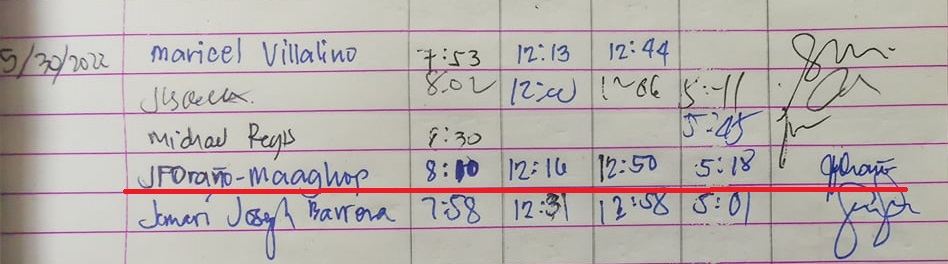 5/30/2022 Maricel Villalino 7:53 12:13 12:44
8:02 12:00 12:06 5:11
Michael Regis 8:30 5:45
JFOraño-Maaghop 8:10 12:16 12:50 5:18
Jomari Joseph Barrera 7:58 12:31 12:58 5:01